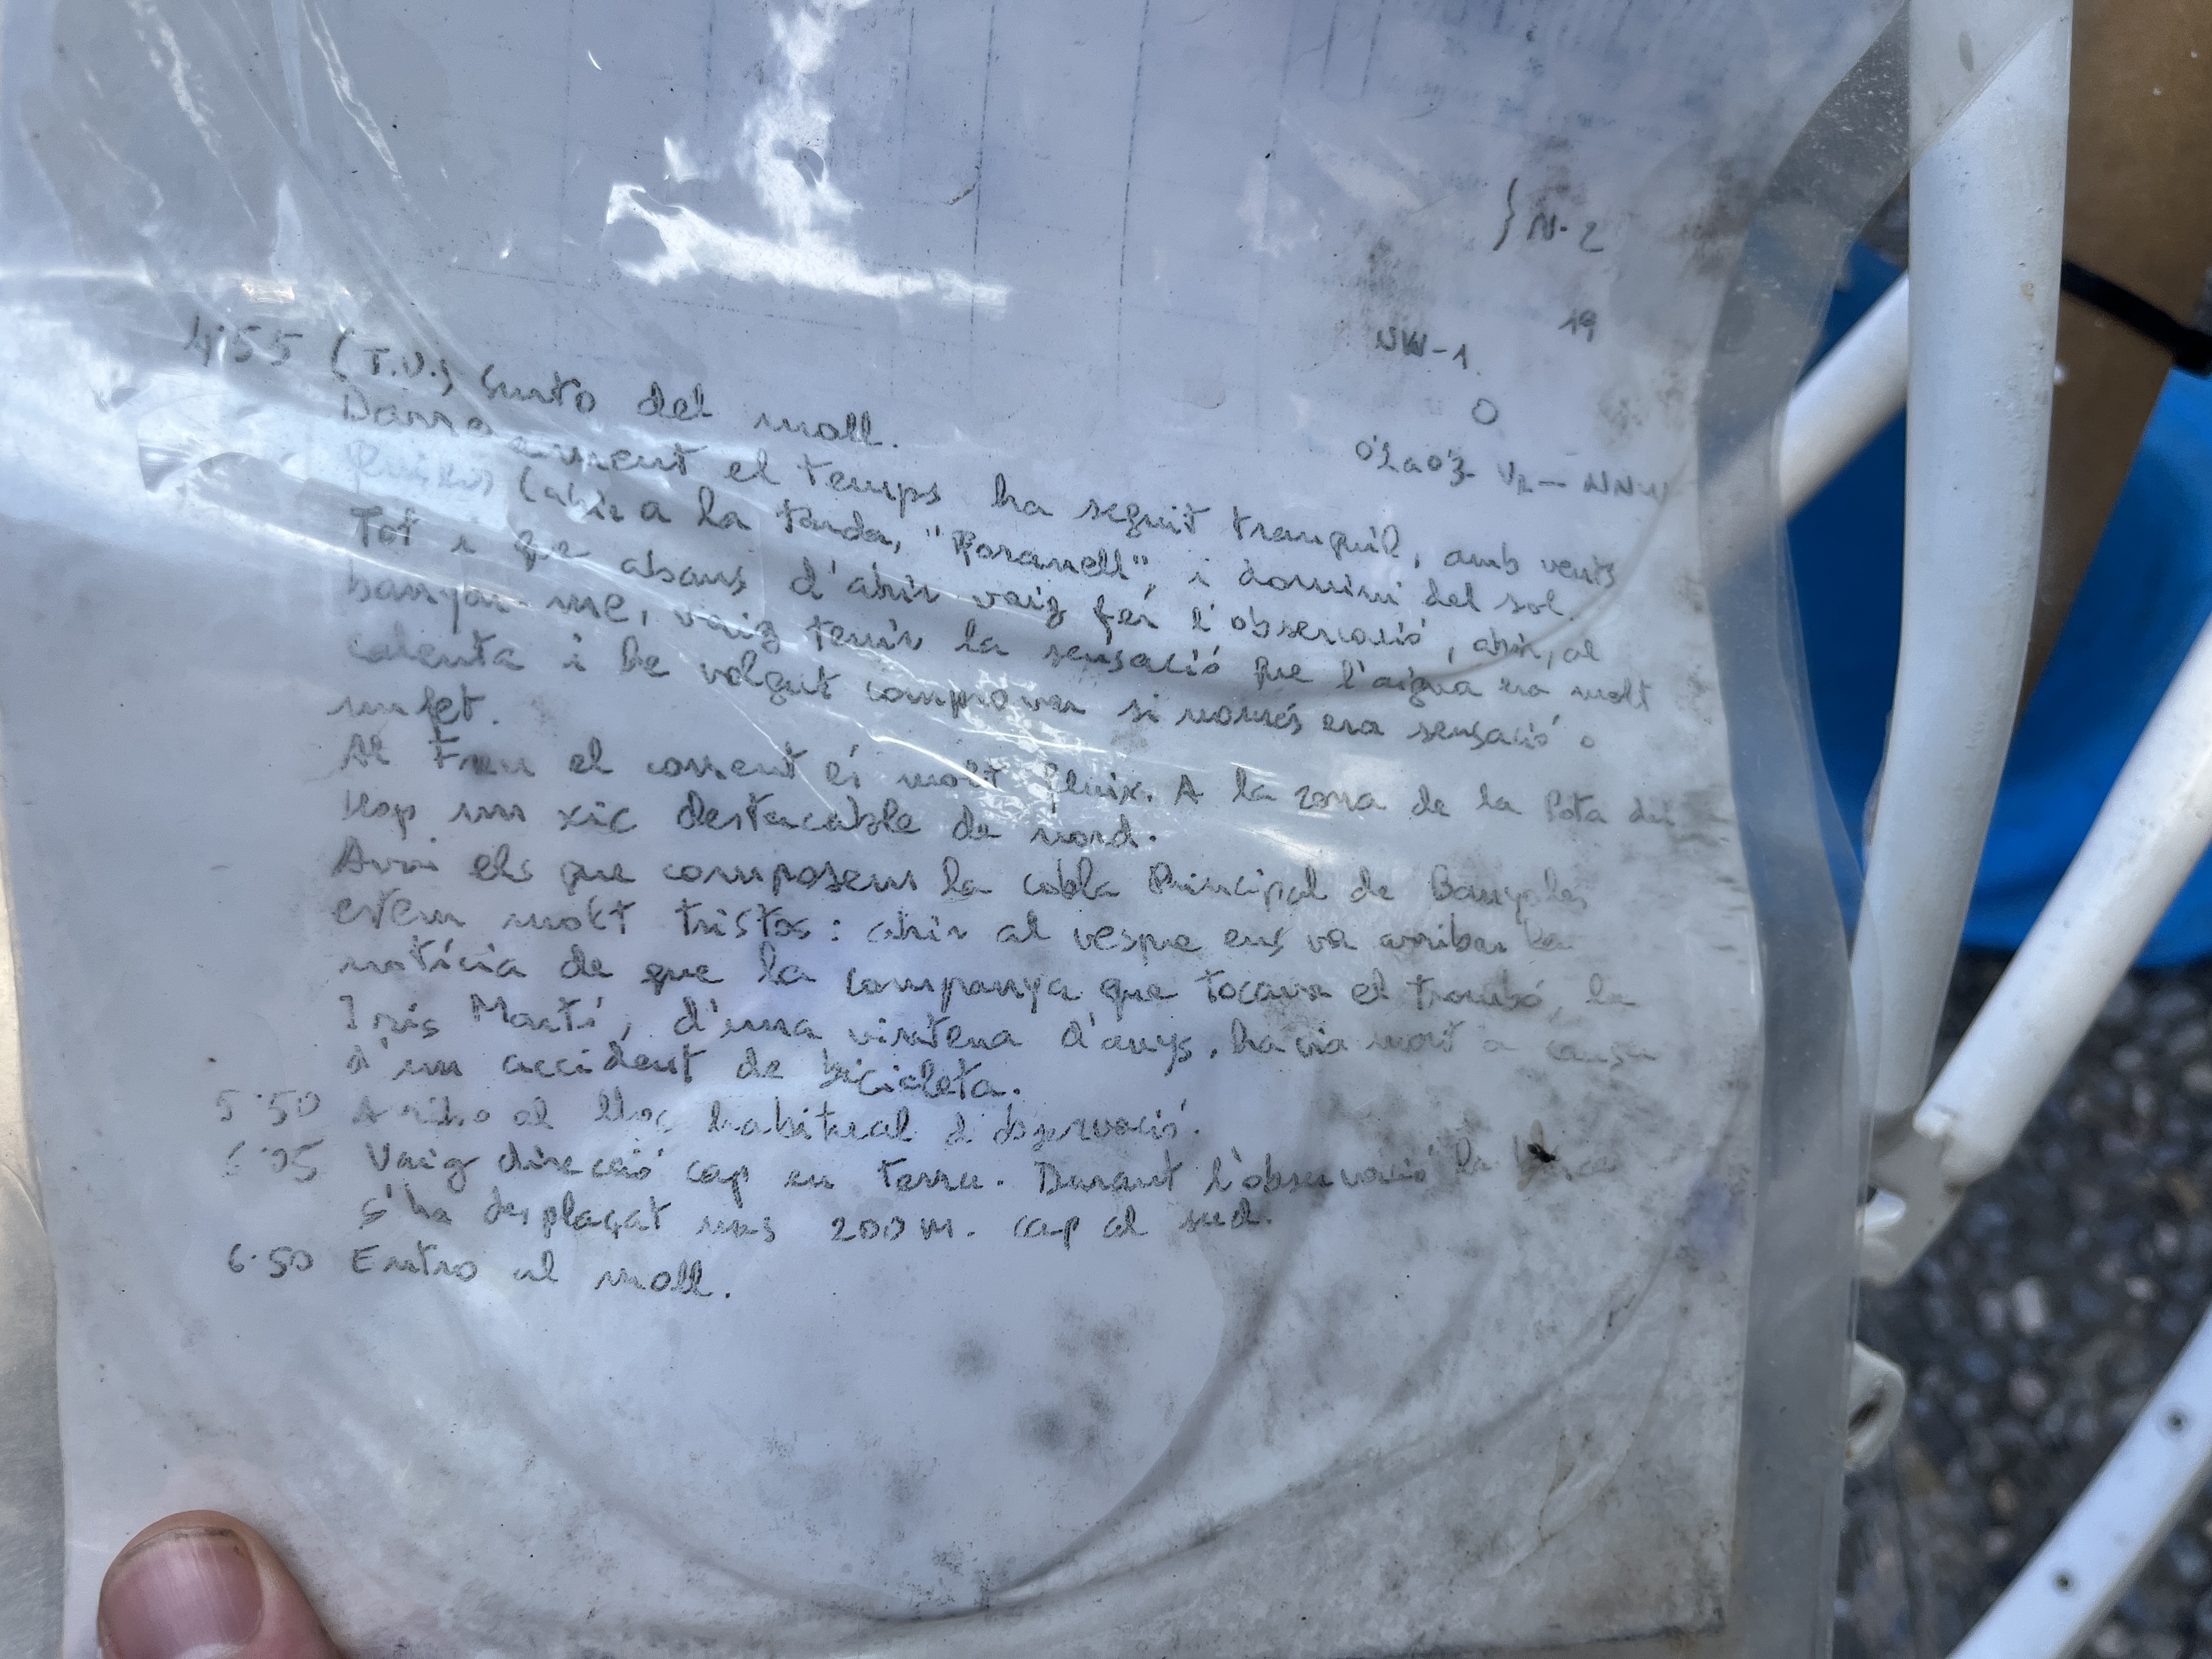 } N-2
19
NW-1
0
0'2 a 0'3 VR — NNW
4'55 (T.U.) Surto del moll.
Darrerament el temps ha seguit tranquil, amb vents
fluixos (ahir a la tarda, "Foranell", i domini del sol.
Tot i que abans d'ahir vaig fer l'observació, ahir, al
banyar-me, vaig tenir la sensació que l'aigua era molt
calenta i he volgut comprovar si només era sensació o
un fet.
Al Freu el corrent és molt fluix. A la zona de la Pota del
Llop un xic destacable de nord.
Avui els que composem la cobla Principal de Banyoles
estem molt tristos: ahir al vespre ens va arribar la
notícia de que la companya que tocava el trombó, la
Iris Martí, d'una vintena d'anys, havia mort a causa
d'un accident de bicicleta.
5'50 Arribo al lloc habitual d'observació.
6'05 Vaig direcció cap en terra. Durant l'observació la barca
s'ha desplaçat uns 200 m. cap al sud.
6'50 Entro al moll.